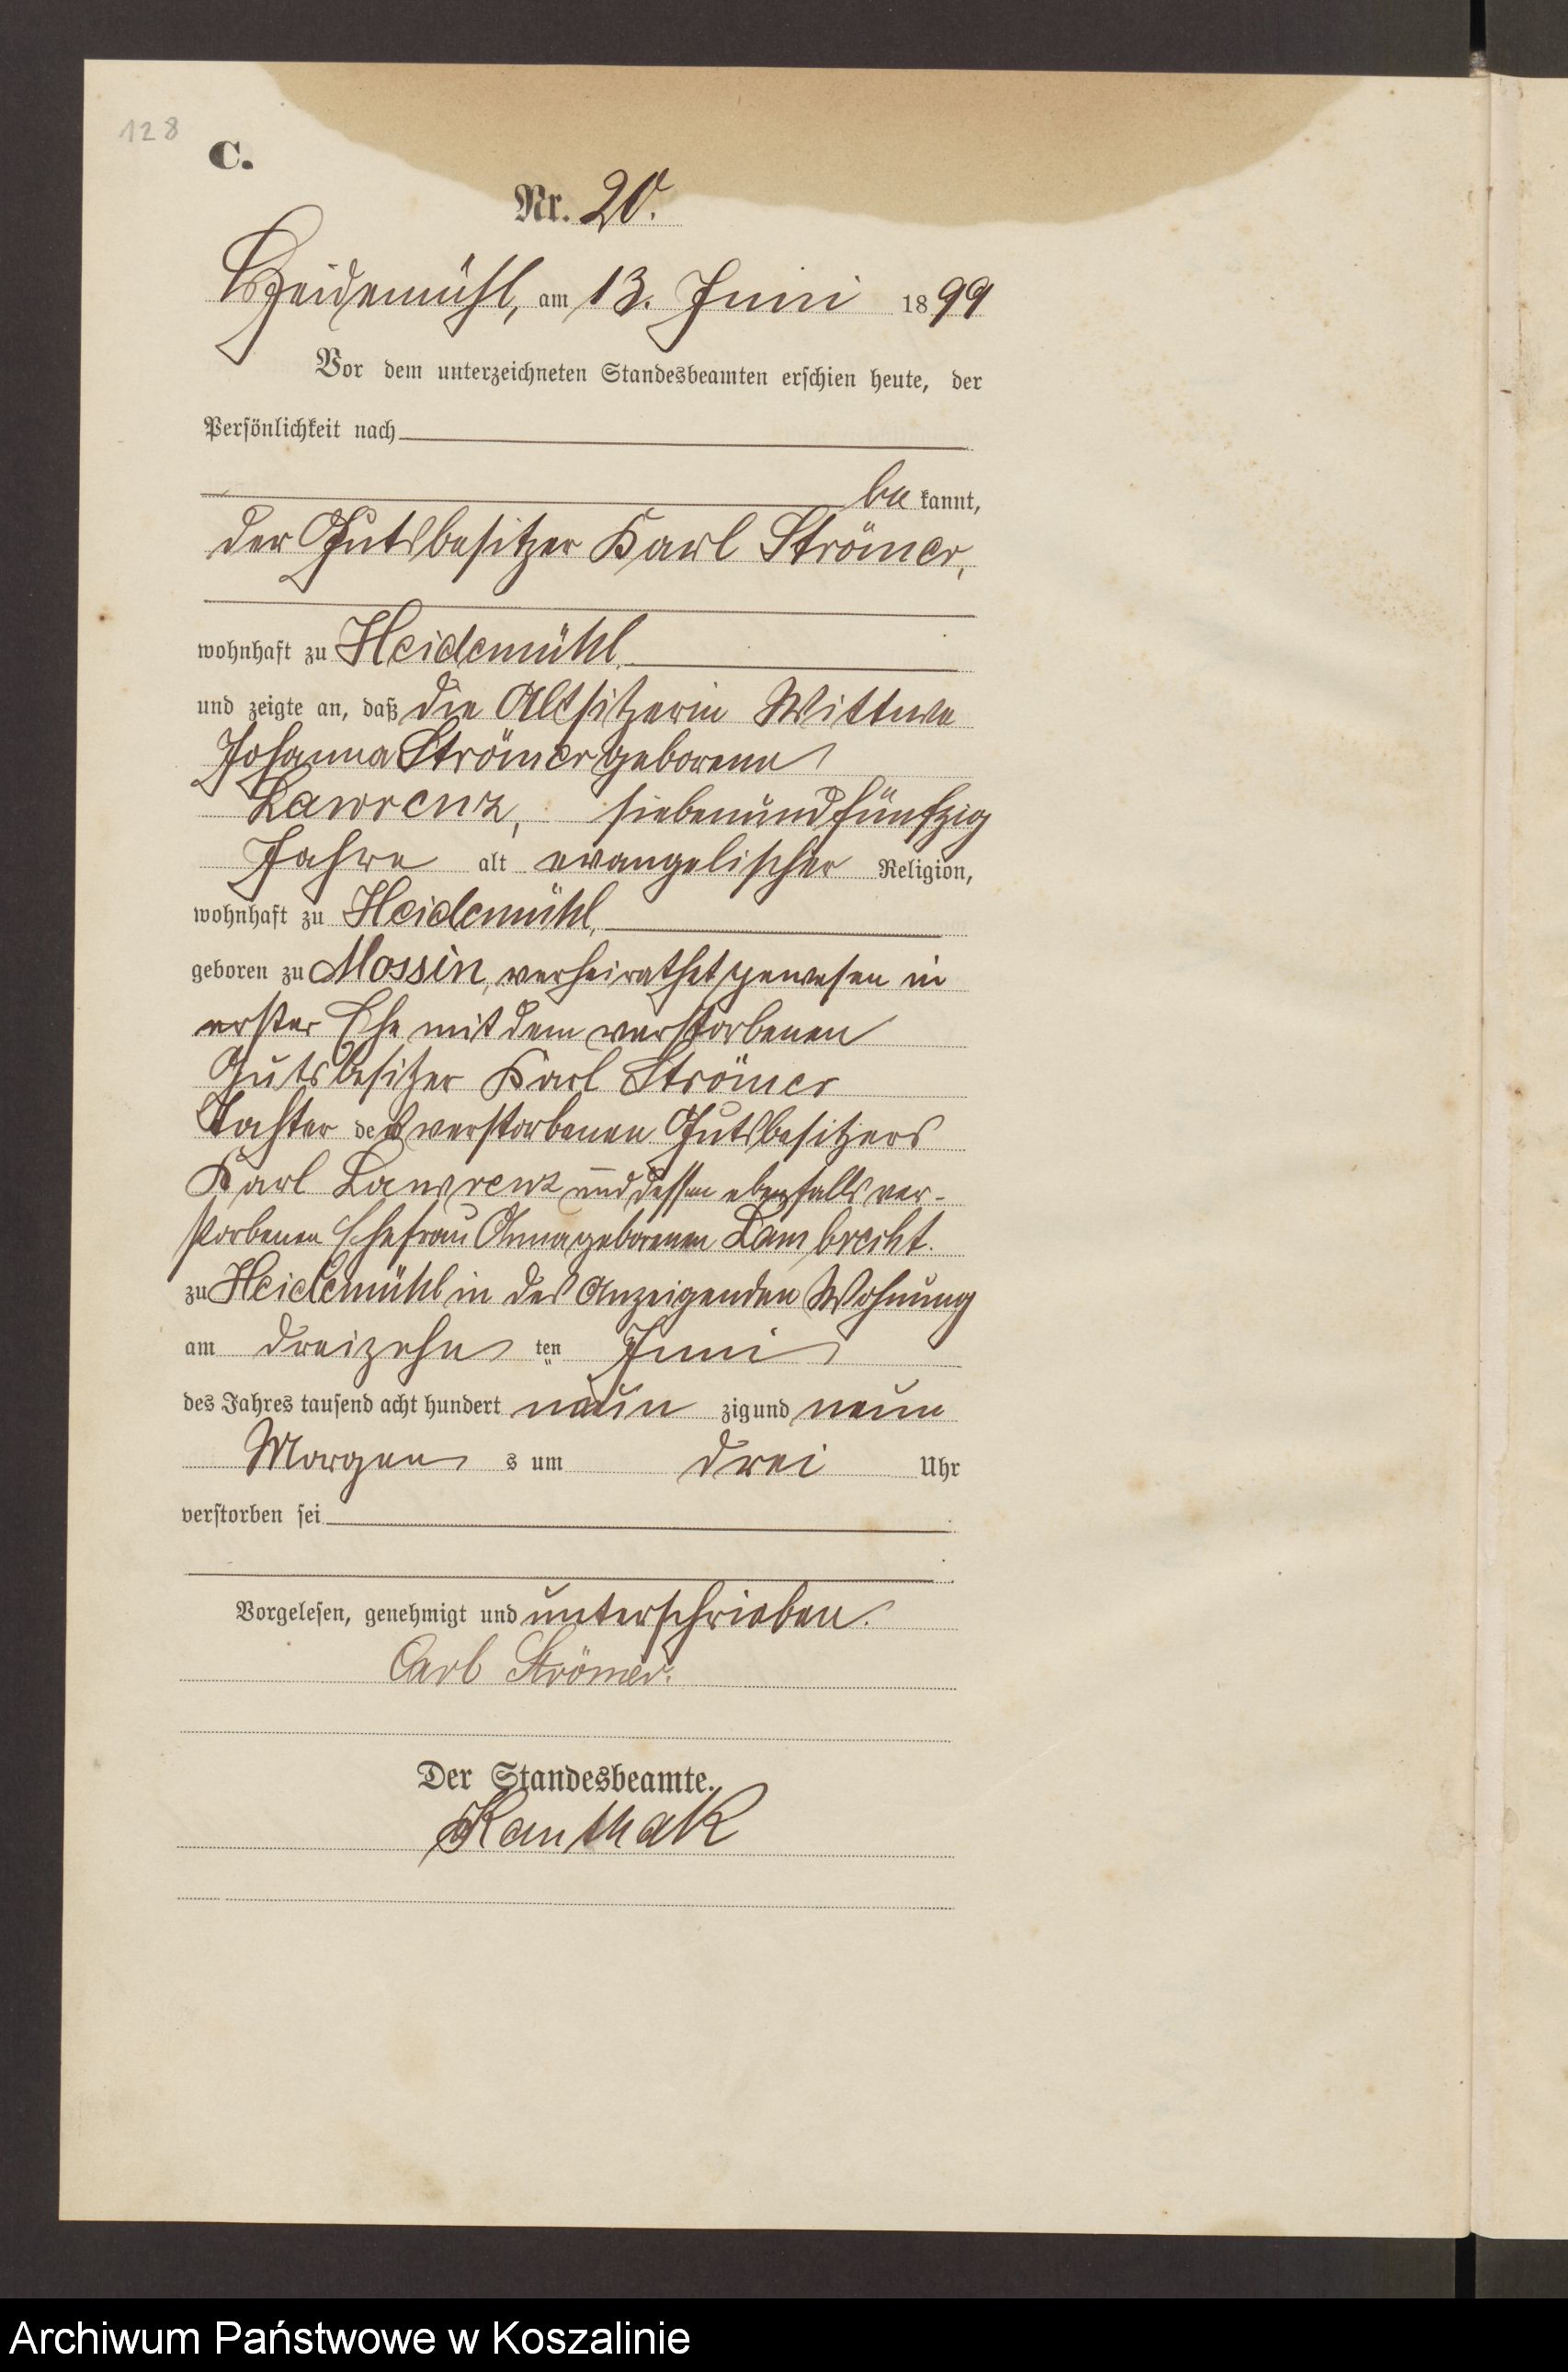 128
C.
Nr. 20.
Heidemühl, am 13. Juni 1899
Vor dem unterzeichneten Standesbeamten erschien heute, der
Persönlichkeit nach
be kannt,
der Gutsbesitzer Karl Strömer,
wohnhaft zu Heidemühl,
und zeigte an, daß die Altsitzerin Wittwe
Johanna Strömer geborene
Lawrenz, siebenundfünfzig
Jahre alt evangelischer Religion,
wohnhaft zu Heidemühl,
geboren zu Mossin, verheirathet gewesen in
erster Ehe mit dem verstorbenen
Gutsbesitzer Karl Strömer
Tochter des verstorbenen Gutsbesitzers
Karl Lawrenz und dessen ebenfalls ver-
storbenen Ehefrau Anna geborenen Lambrecht.
zu Heidemühl in des Anzeigenden Wohnung
am dreizehn ten Juni
des Jahres tausend acht hundert neun zig und neun
Morgen s um drei Uhr
verstorben sei
Vorgelesen, genehmigt und unterschrieben.
Carl Strömer.
Der Standesbeamte.
Kanthak
Archiwum Państwowe w Koszalinie